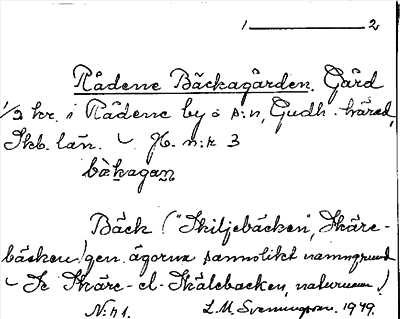 1 ——— 2
Rådene Bäckagården. Gård
1/2 kr. i Rådene by o s:n, Gudh. härad,
Skb. län. Jb. n:r 3
bäkagan
Bäck ("Skiljebäcken", Skäre-
bäcken) gen. ägorna sannolikt namngrund
Se Skäre- el. Skälebacken, naturnamn)
N:r 1. L.M. Svenungsson. 1949.